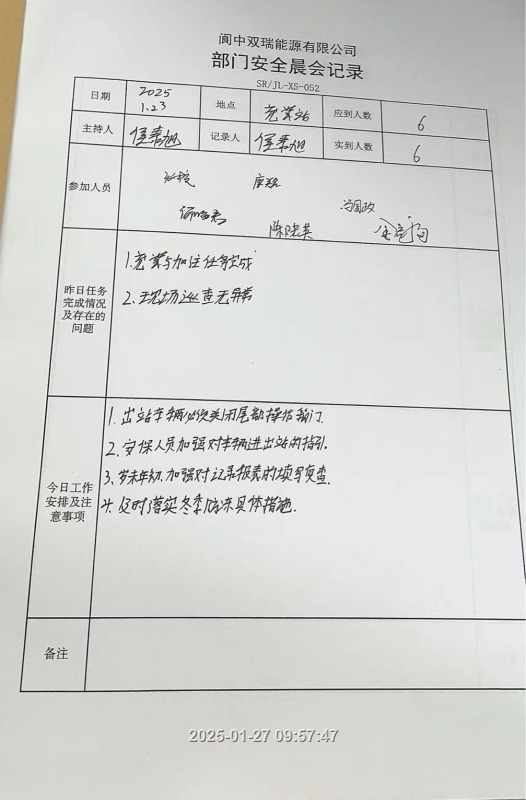 阆中双瑞能源有限公司
部门安全晨会记录
SR/JL-XS-052
日期 2025 1.23 地点 充装站 应到人数 6
主持人 记录人 实到人数 6
参加人员
昨日任务完成情况及存在的问题
1.充装与加注任务完成
2.现场巡查无异常
今日工作安排及注意事项
1.出站车辆必须关闭尾部操作箱门.
2.安保人员加强对车辆进出站的指引.
3.岁末年初,加强对记录报表的填写复查.
4.及时落实冬季防冻具体措施.
备注
2025-01-27 09:57:47